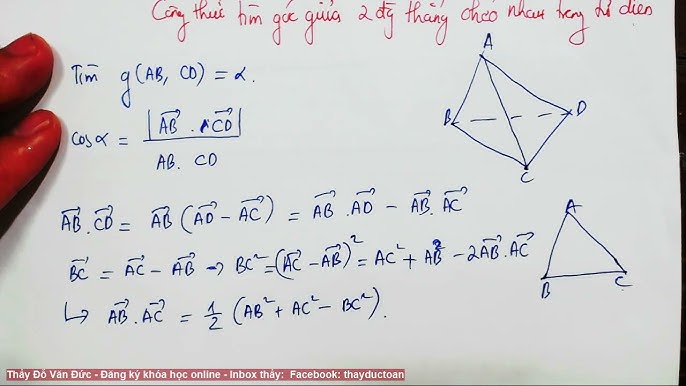 Công thức tìm góc giữa 2 đg thẳng chéo nhau trong tứ diện
Tìm g(AB, CD) = α.
cos α = |\overrightarrow{AB} . \overrightarrow{CD}| / AB . CD
\overrightarrow{AB}.\overrightarrow{CD} = \overrightarrow{AB} (\overrightarrow{AD} - \overrightarrow{AC}) = \overrightarrow{AB} . \overrightarrow{AD} - \overrightarrow{AB}. \overrightarrow{AC}
\overrightarrow{BC} = \overrightarrow{AC} - \overrightarrow{AB} → BC² = (\overrightarrow{AC} - \overrightarrow{AB})² = AC² + AB² - 2\overrightarrow{AB}.\overrightarrow{AC}
↳ \overrightarrow{AB}.\overrightarrow{AC} = 1/2 (AB² + AC² - BC²).
A
B
D
C
A
B
C
Thầy Đỗ Văn Đức - Đăng ký khóa học online - Inbox thầy: Facebook: thayductoan